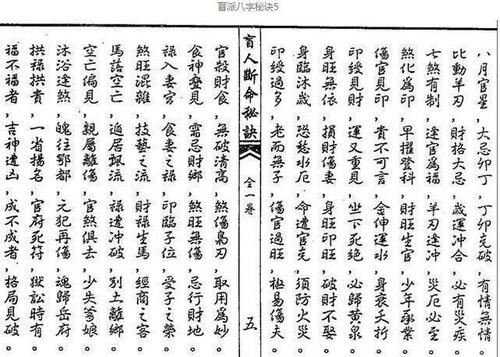 盲派八字秘诀5
八月官星，大忌卯丁，丁卯克破，有情無情。
比動羊刃，財格大忌，歲運冲合，必有災疾。
七煞有制，逢官為福，羊刃逢冲，災厄必至。
煞化為印，早擢登科，財旺生官，少年承業。
傷官見印，貴不可言，金伸運水，身衰夭折。
印綬見財，運又重見，坐下死絶，必歸黃泉。
身旺無依，損財傷妻，身印印旺，破財不娶。
身臨沐敗，恐妨水厄，命遭官克，須防火災。
印綬過多，老而無子，傷官過旺，極易傷夫。
盲人斷命秘訣 全一卷 五
官殺財食，無破清高，煞傷梟刃，取用為妙。
食神叠見，需忌財鄉，煞旺無傷，忌行財地。
祿入妻宮，食妻之祿，印臨子位，受子之榮。
煞旺混雜，技藝之流，財祿坐馬，經商之客。
馬落空亡，遁居飄流，祿遭冲破，別土離鄉。
空亡偏見，親屬離傷，官煞俱去，少失爹娘。
沐浴逢煞，魄往鄂都，元犯再傷，魂歸岳府。
拱祿拱貴，一省揚名，官府死符，獄訟時有。
福不福者，吉神遭凶，成不成者，格局見破。